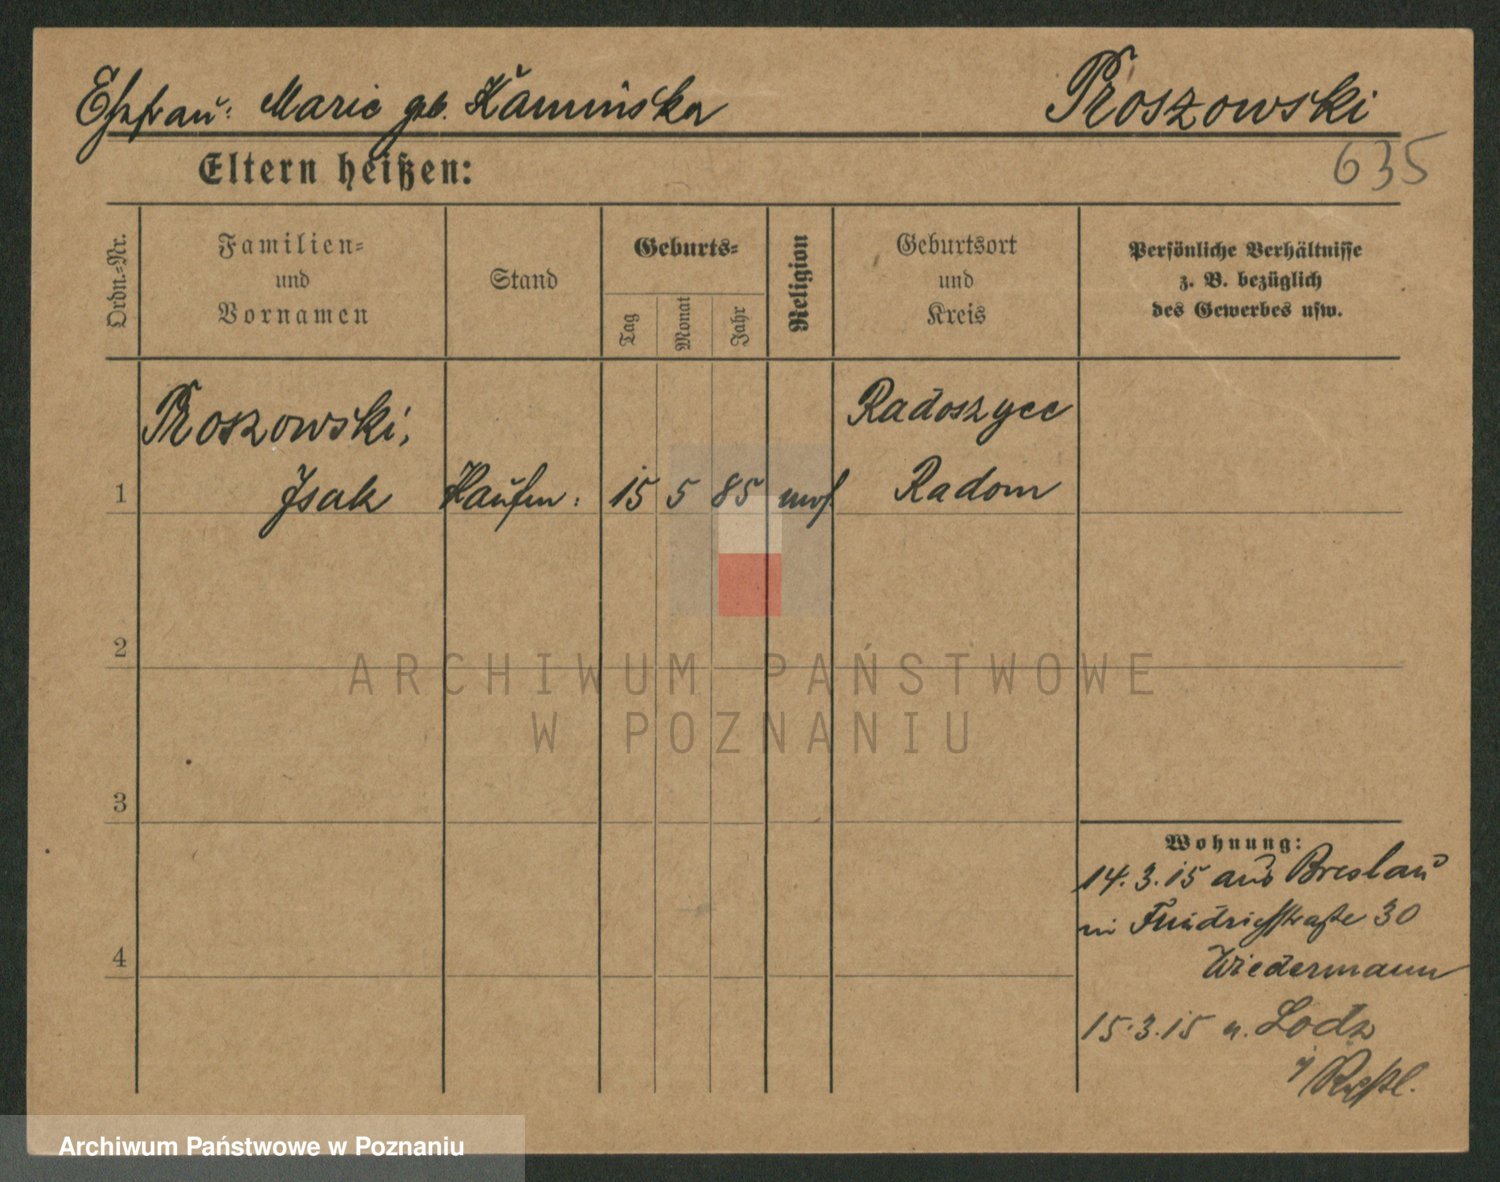 Ehefrau: Marie gb. Kaminska
Proszowski
635
Eltern heißen:
Ordn.-Nr.
Familien-
und
Vornamen
Stand
Geburts-
Tag
Monat
Jahr
Religion
Geburtsort
und
Kreis
Persönliche Verhältnisse
z. B. bezüglich
des Gewerbes usw.
Proszowski,
1 Isak Kaufm: 15 5 85 mos.
Radoszyce
Radom
2
3
4
Wohnung:
14.3.15 aus Breslau
in Friedrichstraße 30
Wiedermann
15.3.15 n. Lodz
i/Rußl.
ARCHIWUM PAŃSTWOWE
W POZNANIU
Archiwum Państwowe w Poznaniu